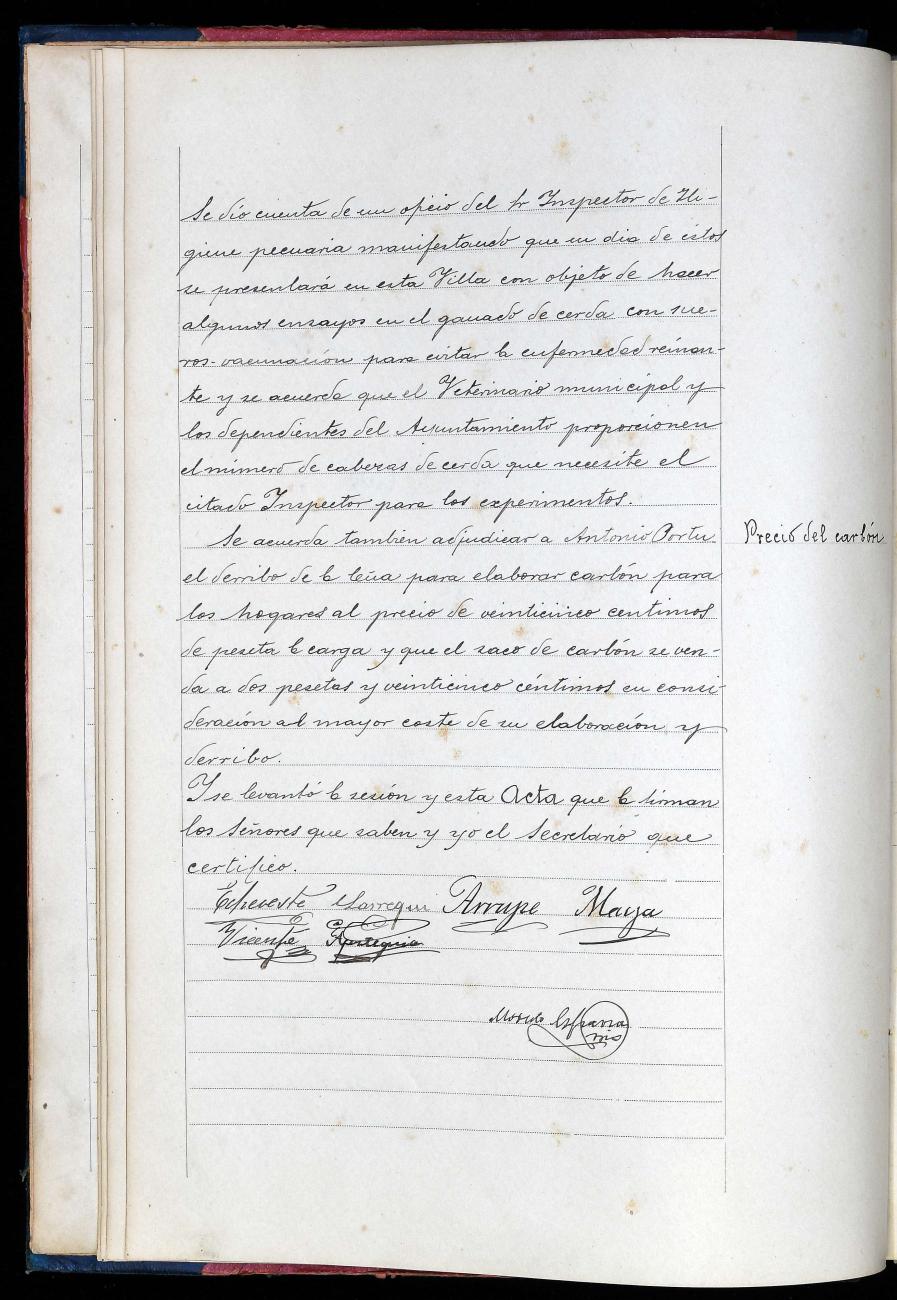 Se dio cuenta de un oficio del Sr Inspector de Hi-
giene pecuaria manifestando que un dia de éstos
se presentará en esta Villa con objeto de hacer
algunos ensayos en el ganado de cerda con sue-
ros-vacunación para evitar la enfermedad reinan-
te y se acuerda que el Veterinario municipal y
los dependientes del Ayuntamiento proporcionen
el número de cabezas de cerda que necesite el
citado Inspector para los experimentos.
Se acuerda también adjudicar a Antonio Portu
Precio del carbón
el derribo de la leña para elaborar carbón para
los hogares al precio de veinticinco centimos
de peseta la carga y que el saco de carbón se ven-
da a dos pesetas y veinticinco céntimos en consi-
deración al mayor coste de su elaboración y
derribo.
Y se levantó la sesión y esta Acta que la firman
los Señores que saben y yo el Secretario que
certifico.
Echeveste Larrequi Arrupe Maya
Vicente